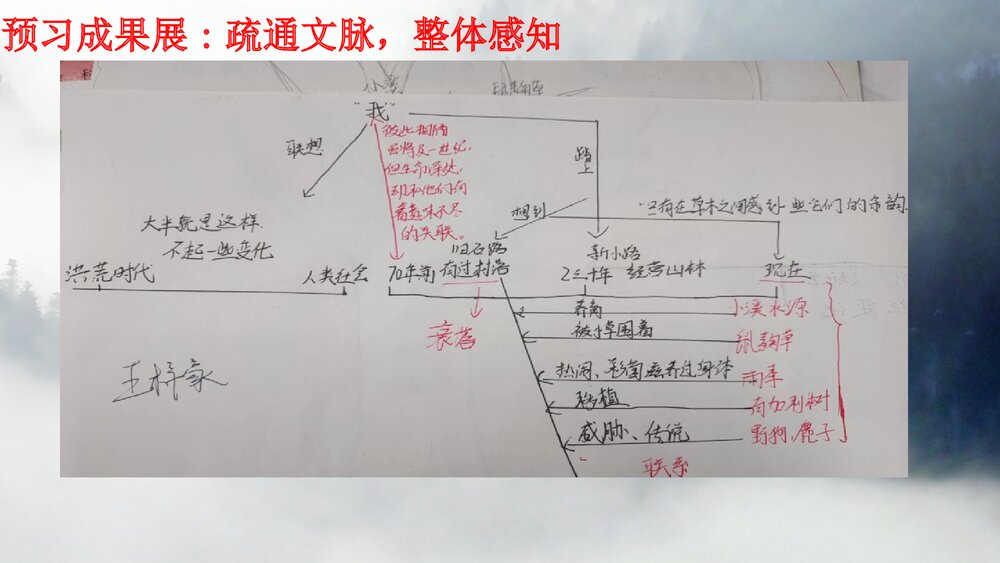 预习成果展：疏通文脉，整体感知
小溪
“我”
联想
彼此相隔
已将及一世纪，
但生命深处，
却和他们向
着意味不尽
的关联。
踏上
想到
只有在草木之间感到一些它们的余韵。
大半就是这样
不起一些变化
旧石路
新小路
洪荒时代
人类社会
70年前
有过村落
二三十年
经营山林
现在
衰落
养育
小溪水源
被小草围着
鼠麴草
热闹、彩菌滋养过身体
雨季
移植
有加利树
威胁、传说
野狗、鹿子
联系